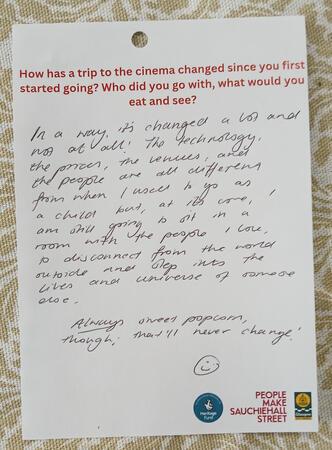 How has a trip to the cinema changed since you first
started going? Who did you go with, what would you
eat and see?
In a way, it's changed a lot and
not at all! The technology,
the prices, the venues, and
the people are all different
from when I used to go as
a child but, at its core, I
am still going to sit in a
room with the people I love,
to disconnect from the world
outside and step into the
lives and universe of someone
else.
Always sweet popcorn,
though; that'll never change!
Heritage
Fund
PEOPLE
MAKE
SAUCHIEHALL
STREET